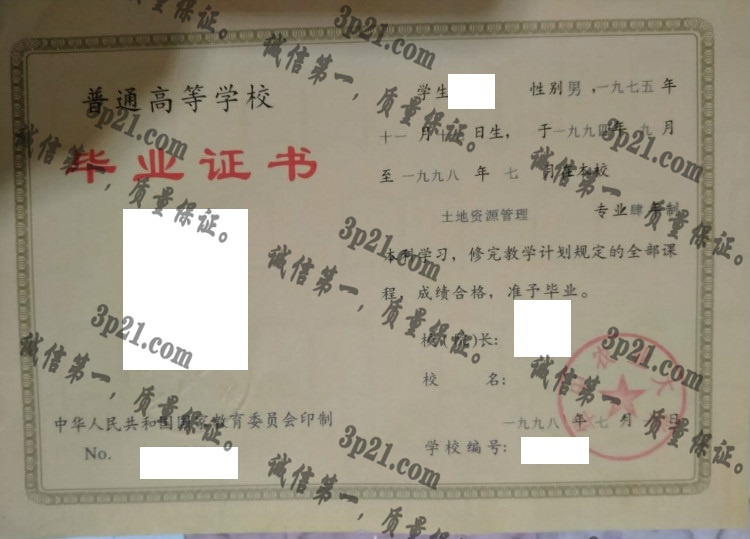 普通高等学校
毕业证书
中华人民共和国国家教育委员会印制
No.
学生 性别男，一九七五年
十一月十 日生，于一九九四年九月
至一九九八年七月在本校
土地资源管理 专业肆年制
本科学习，修完教学计划规定的全部课
程，成绩合格，准予毕业。
校 长：
校 名：
一九九八年七月 日
学校编号：
3p21.com
诚信第一，质量保证。
3p21.com
诚信第一，质量保证。
3p21.com
诚信第一，质量保证。
3p21.com
诚信第一，质量保证。
3p21.com
诚信第一，质量保证。
3p21.com
诚信第一，质量保证。
3p21.com
诚信第一，质量保证。
3p21.com
诚信第一，质量保证。